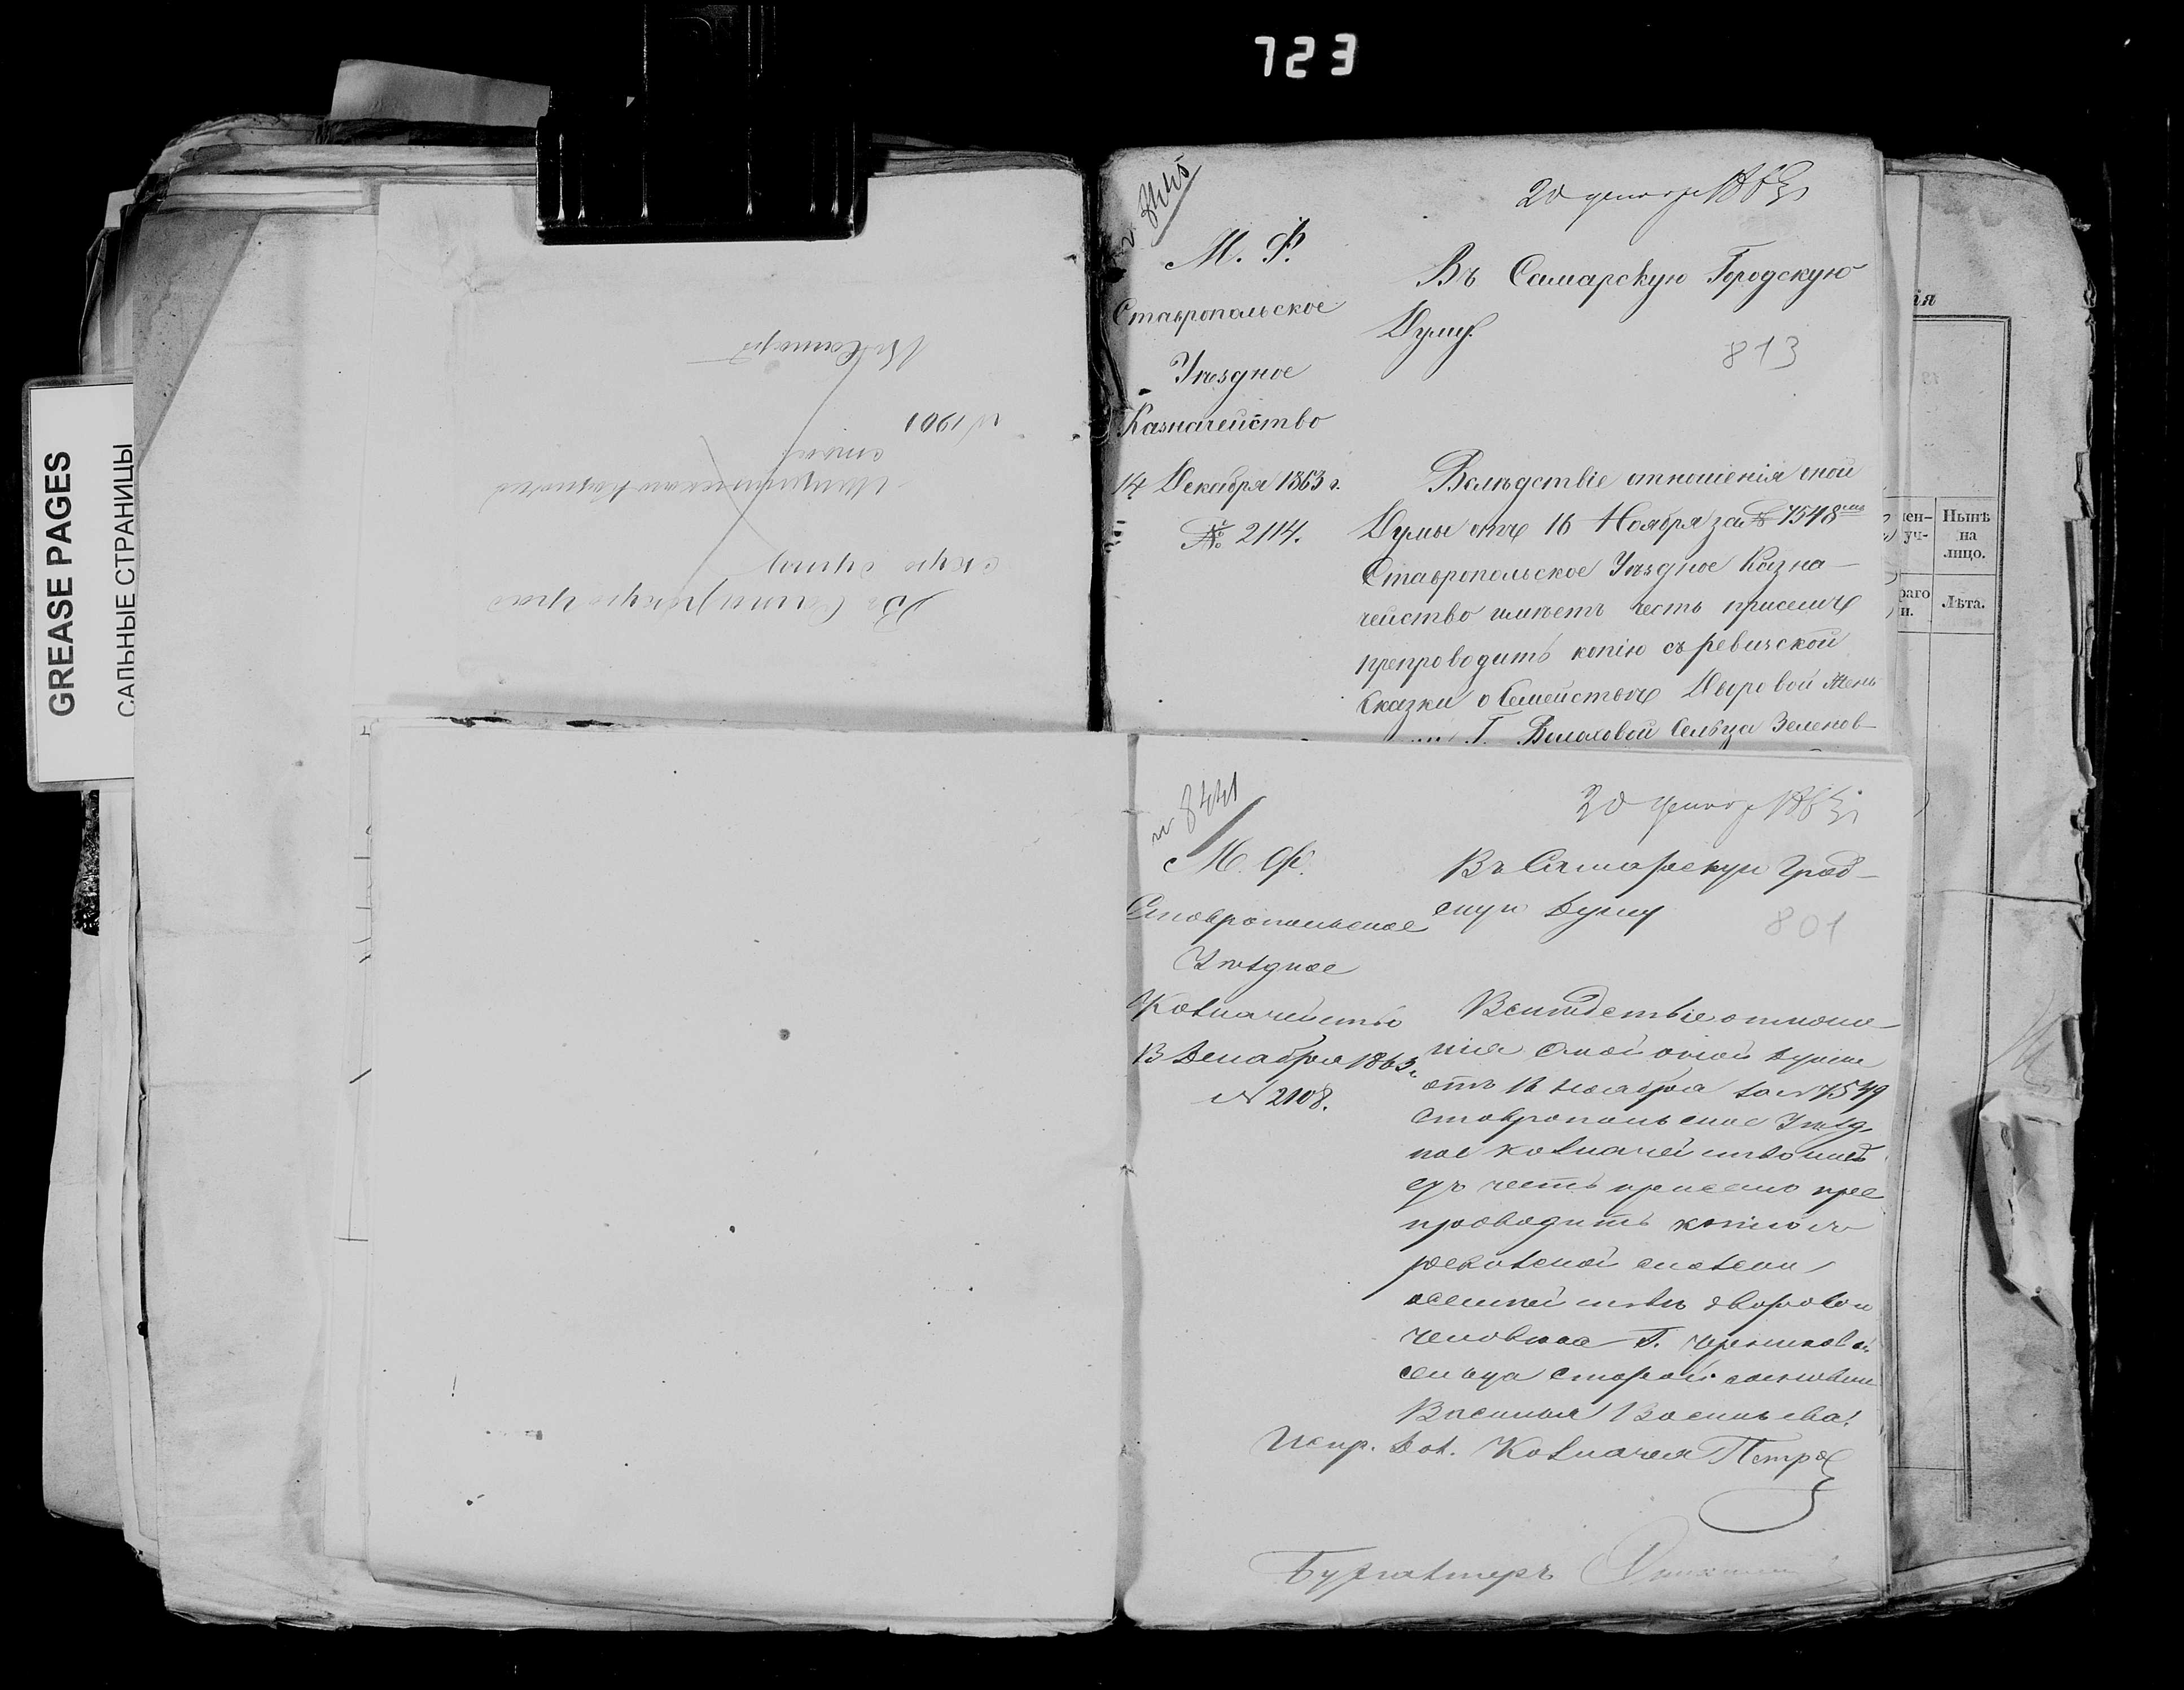 723
GREASE PAGES
САЛЬНЫЕ СТРАНИЦЫ
Въ Самарскую град
скую думу
№ 1901
20 декабр 1863
М. Ф.
Ставропольское
Уѣздное
Казначейство
14 Декабря 1863 г.
№ 2114.
Въ Самарскую Городскую
Думу.
813
Вслѣдствіе отношенія оной
Думы отъ 16 Ноября за № 7548
Ставропольское Уѣздное Казна-
чейство имѣетъ честь при семъ
препроводить копію съ ревизской
сказки о Семействѣ Дворовой Жен
Г. Сельца Зеленов-
№ 8441
20 декабр 1863
М. Ф.
Ставропольское
Уѣздное
Казначейство
13 Декабря 1863 г.
№ 2108.
Въ Самарскую Град-
скую Думу
801
Вслѣдствіе отноше-
нія оной Думы
отъ 16 Ноября за № 7549
Ставропольское Уѣзд
ное Казначейство имѣ
етъ честь при семъ пре
проводить копію съ
ревизской сказки
о семействѣ дворовои
человѣка Г.
сельца Старой
Василья Васильева.
Испр. дол. Казначея Петров
Бухгалтеръ
ія
ен-
уч-
Нынѣ
на
лицо.
раго
н.
Лѣта.